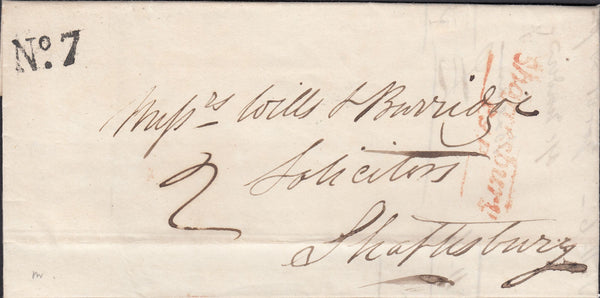 No. 7
Messrs Wills & Burridge
2
Solicitors
Shaftesbury
Shaftesbury